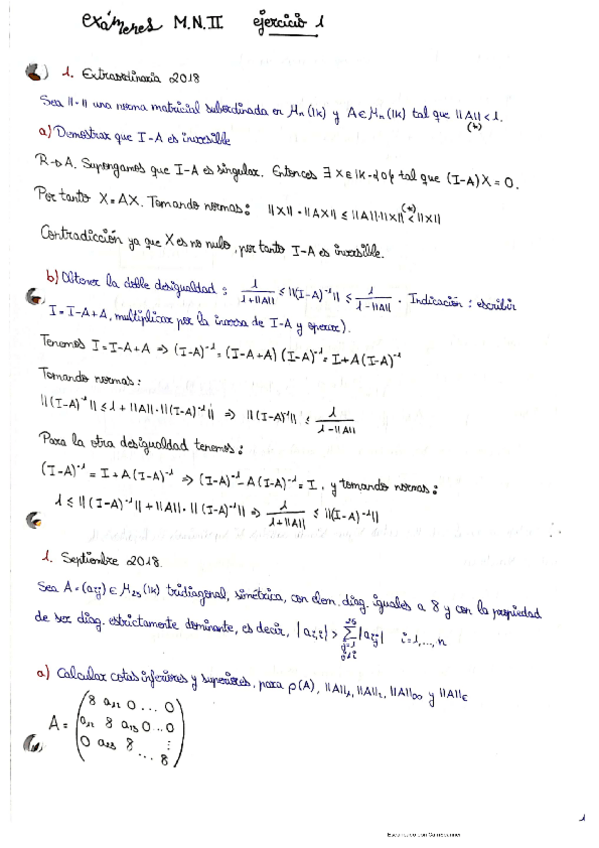 exámenes M.N.II ejercicio 1
1. Extraordinaria 2018
Sea ||·|| una norma matricial subordinada en Mn(IK) y A∈Mn(IK) tal que ||A|| < 1.
(*)
a) Demostrar que I-A es inversible
R→A. Supongamos que I-A es singular. Entonces ∃ X∈IK-{0} tal que (I-A)X = 0.
Por tanto X=AX. Tomando normas: ||X|| = ||AX|| ≤ ||A||·||X|| <(*) ||X||
Contradicción ya que X es no nulo, por tanto I-A es inversible.
b) Obtener la doble desigualdad: 1/(1+||A||) ≤ ||(I-A)⁻¹|| ≤ 1/(1-||A||). Indicación: escribir
I = I-A+A, multiplicar por la inversa de I-A y operar).
Tenemos I = I-A+A ⇒ (I-A)⁻¹ = (I-A+A)(I-A)⁻¹ = I+A(I-A)⁻¹
Tomando normas:
||(I-A)⁻¹|| ≤ 1+||A||·||(I-A)⁻¹|| ⇒ ||(I-A)⁻¹|| ≤ 1/(1-||A||)
Para la otra desigualdad tenemos:
(I-A)⁻¹ = I+A(I-A)⁻¹ ⇒ (I-A)⁻¹-A(I-A)⁻¹ = I, y tomando normas:
1 ≤ ||(I-A)⁻¹||+||A||·||(I-A)⁻¹|| ⇒ 1/(1+||A||) ≤ ||(I-A)⁻¹||
1. Septiembre 2018.
Sea A=(aij) ∈ M25(IK) tridiagonal, simétrica, con elem. diag. iguales a 8 y con la propiedad
de ser diag. estrictamente dominante, es decir, |ai,i| > Σ |aij| i=1,...,n
a) Calcular cotas inferiores y superiores para ρ(A), ||A||1, ||A||2, ||A||∞ y ||A||E
A = (8 a12 0 ... 0
a12 8 a23 0 .. 0
0 a23 8 ⋮
... 8)
1